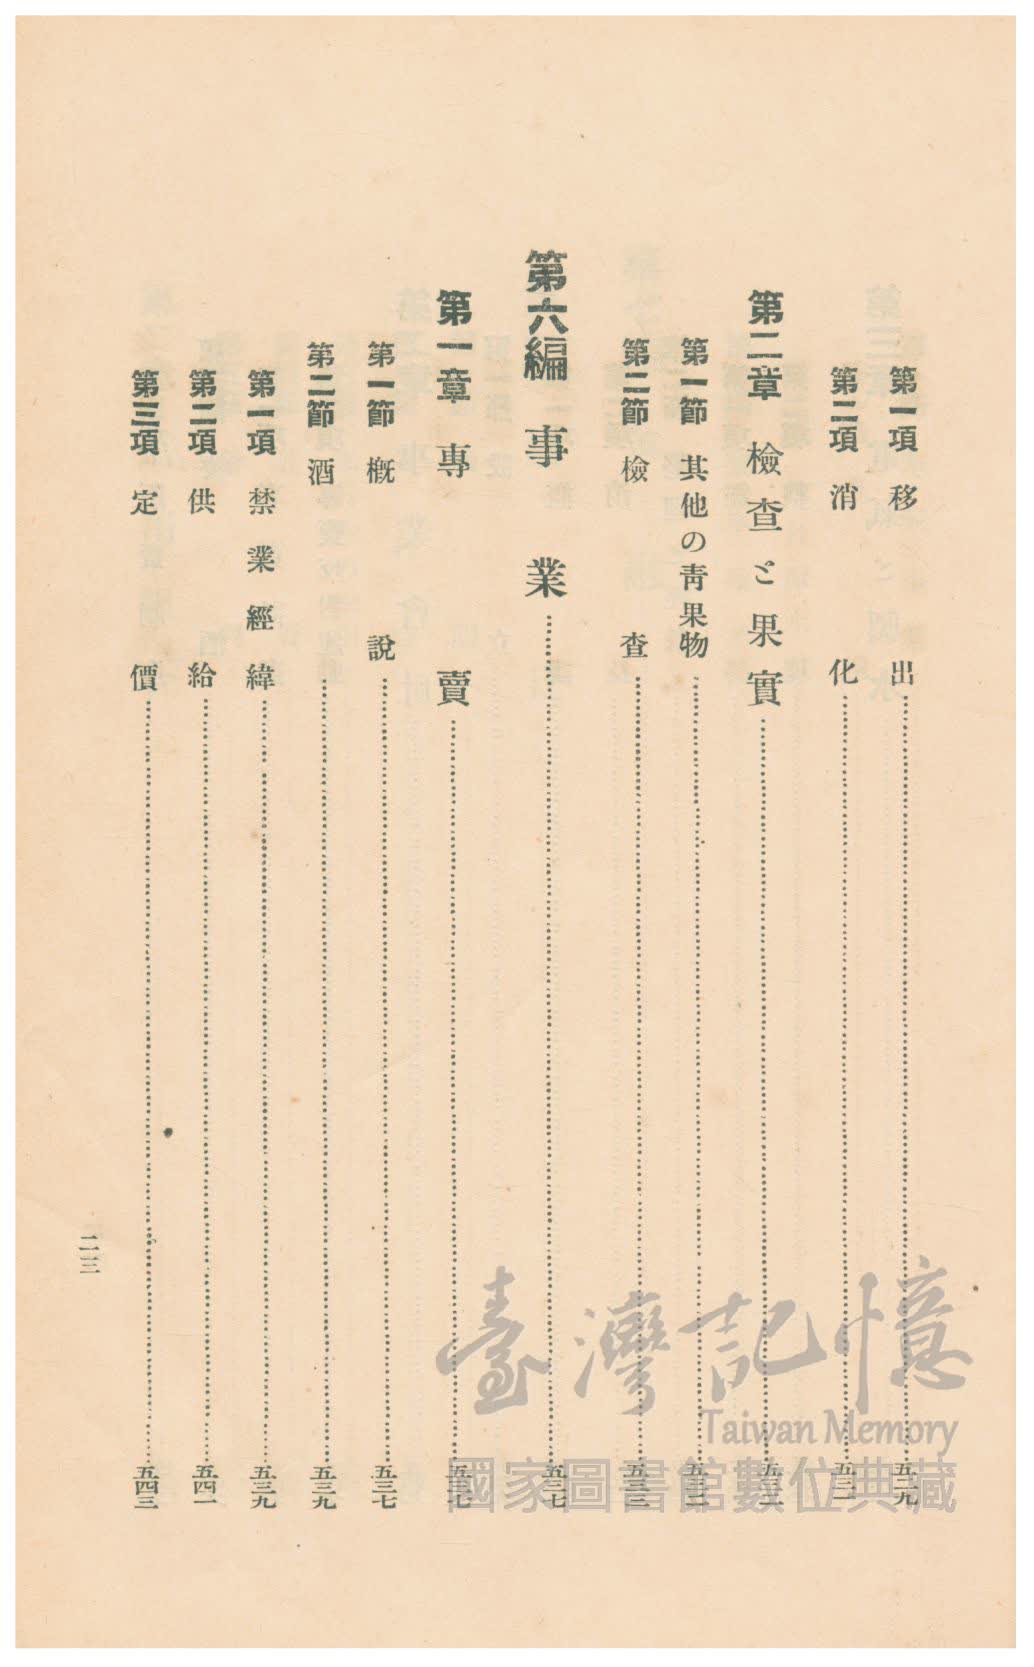 第一項 移出……五二九
第二項 消化……五三一
第二章 檢查と果實
第一節 其他の靑果物
第二節 檢查……五三三
第六編 事業……五三七
第一章 專賣……五三七
第一節 槪說……五三七
第二節 酒……五三九
第一項 禁業經緯……五三九
第二項 供給……五四一
第三項 定價……五四三
二三
臺灣記憶
Taiwan Memory
國家圖書館數位典藏